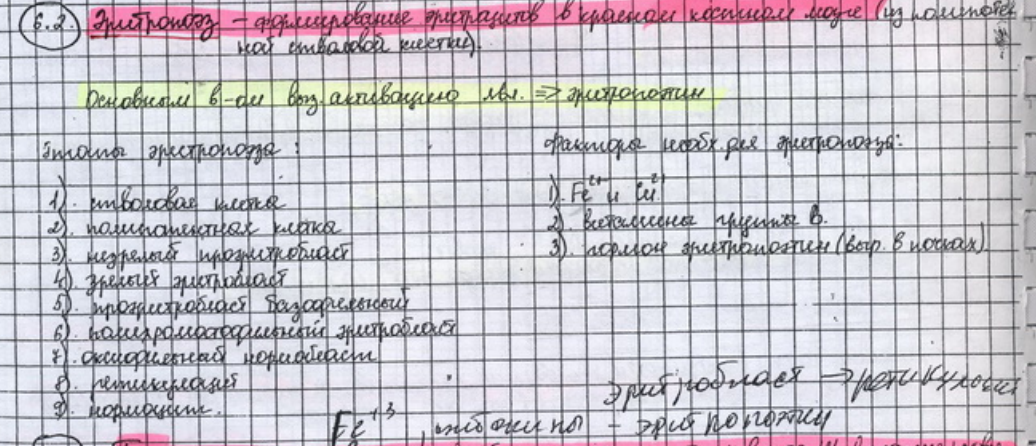 6.2. Эритропоэз – формирование эритроцитов в красном костном мозге (из полипотент
ной стволовой клетки).
Основным в-ом выз. активацию явл. => эритропоэтин
Этапы эритропоэза:
1). стволовая клетка
2). полипотентная клетка
3). незрелый проэритробласт
4). зрелый эритробласт
5). проэритробласт базофильный
6). полихроматофильный эритробласт
7). оксифильный нормобласт
8). ретикулоцит
9). нормоцит.
Факторы необх. для эритропоэза:
1). Fe²⁺ и Cu²⁺
2). витамины группы В.
3). гормон эритропоэтин (выр. в почках)
Эритробласт → ретикулоцит
Fe⁺³, – эритропоэтин